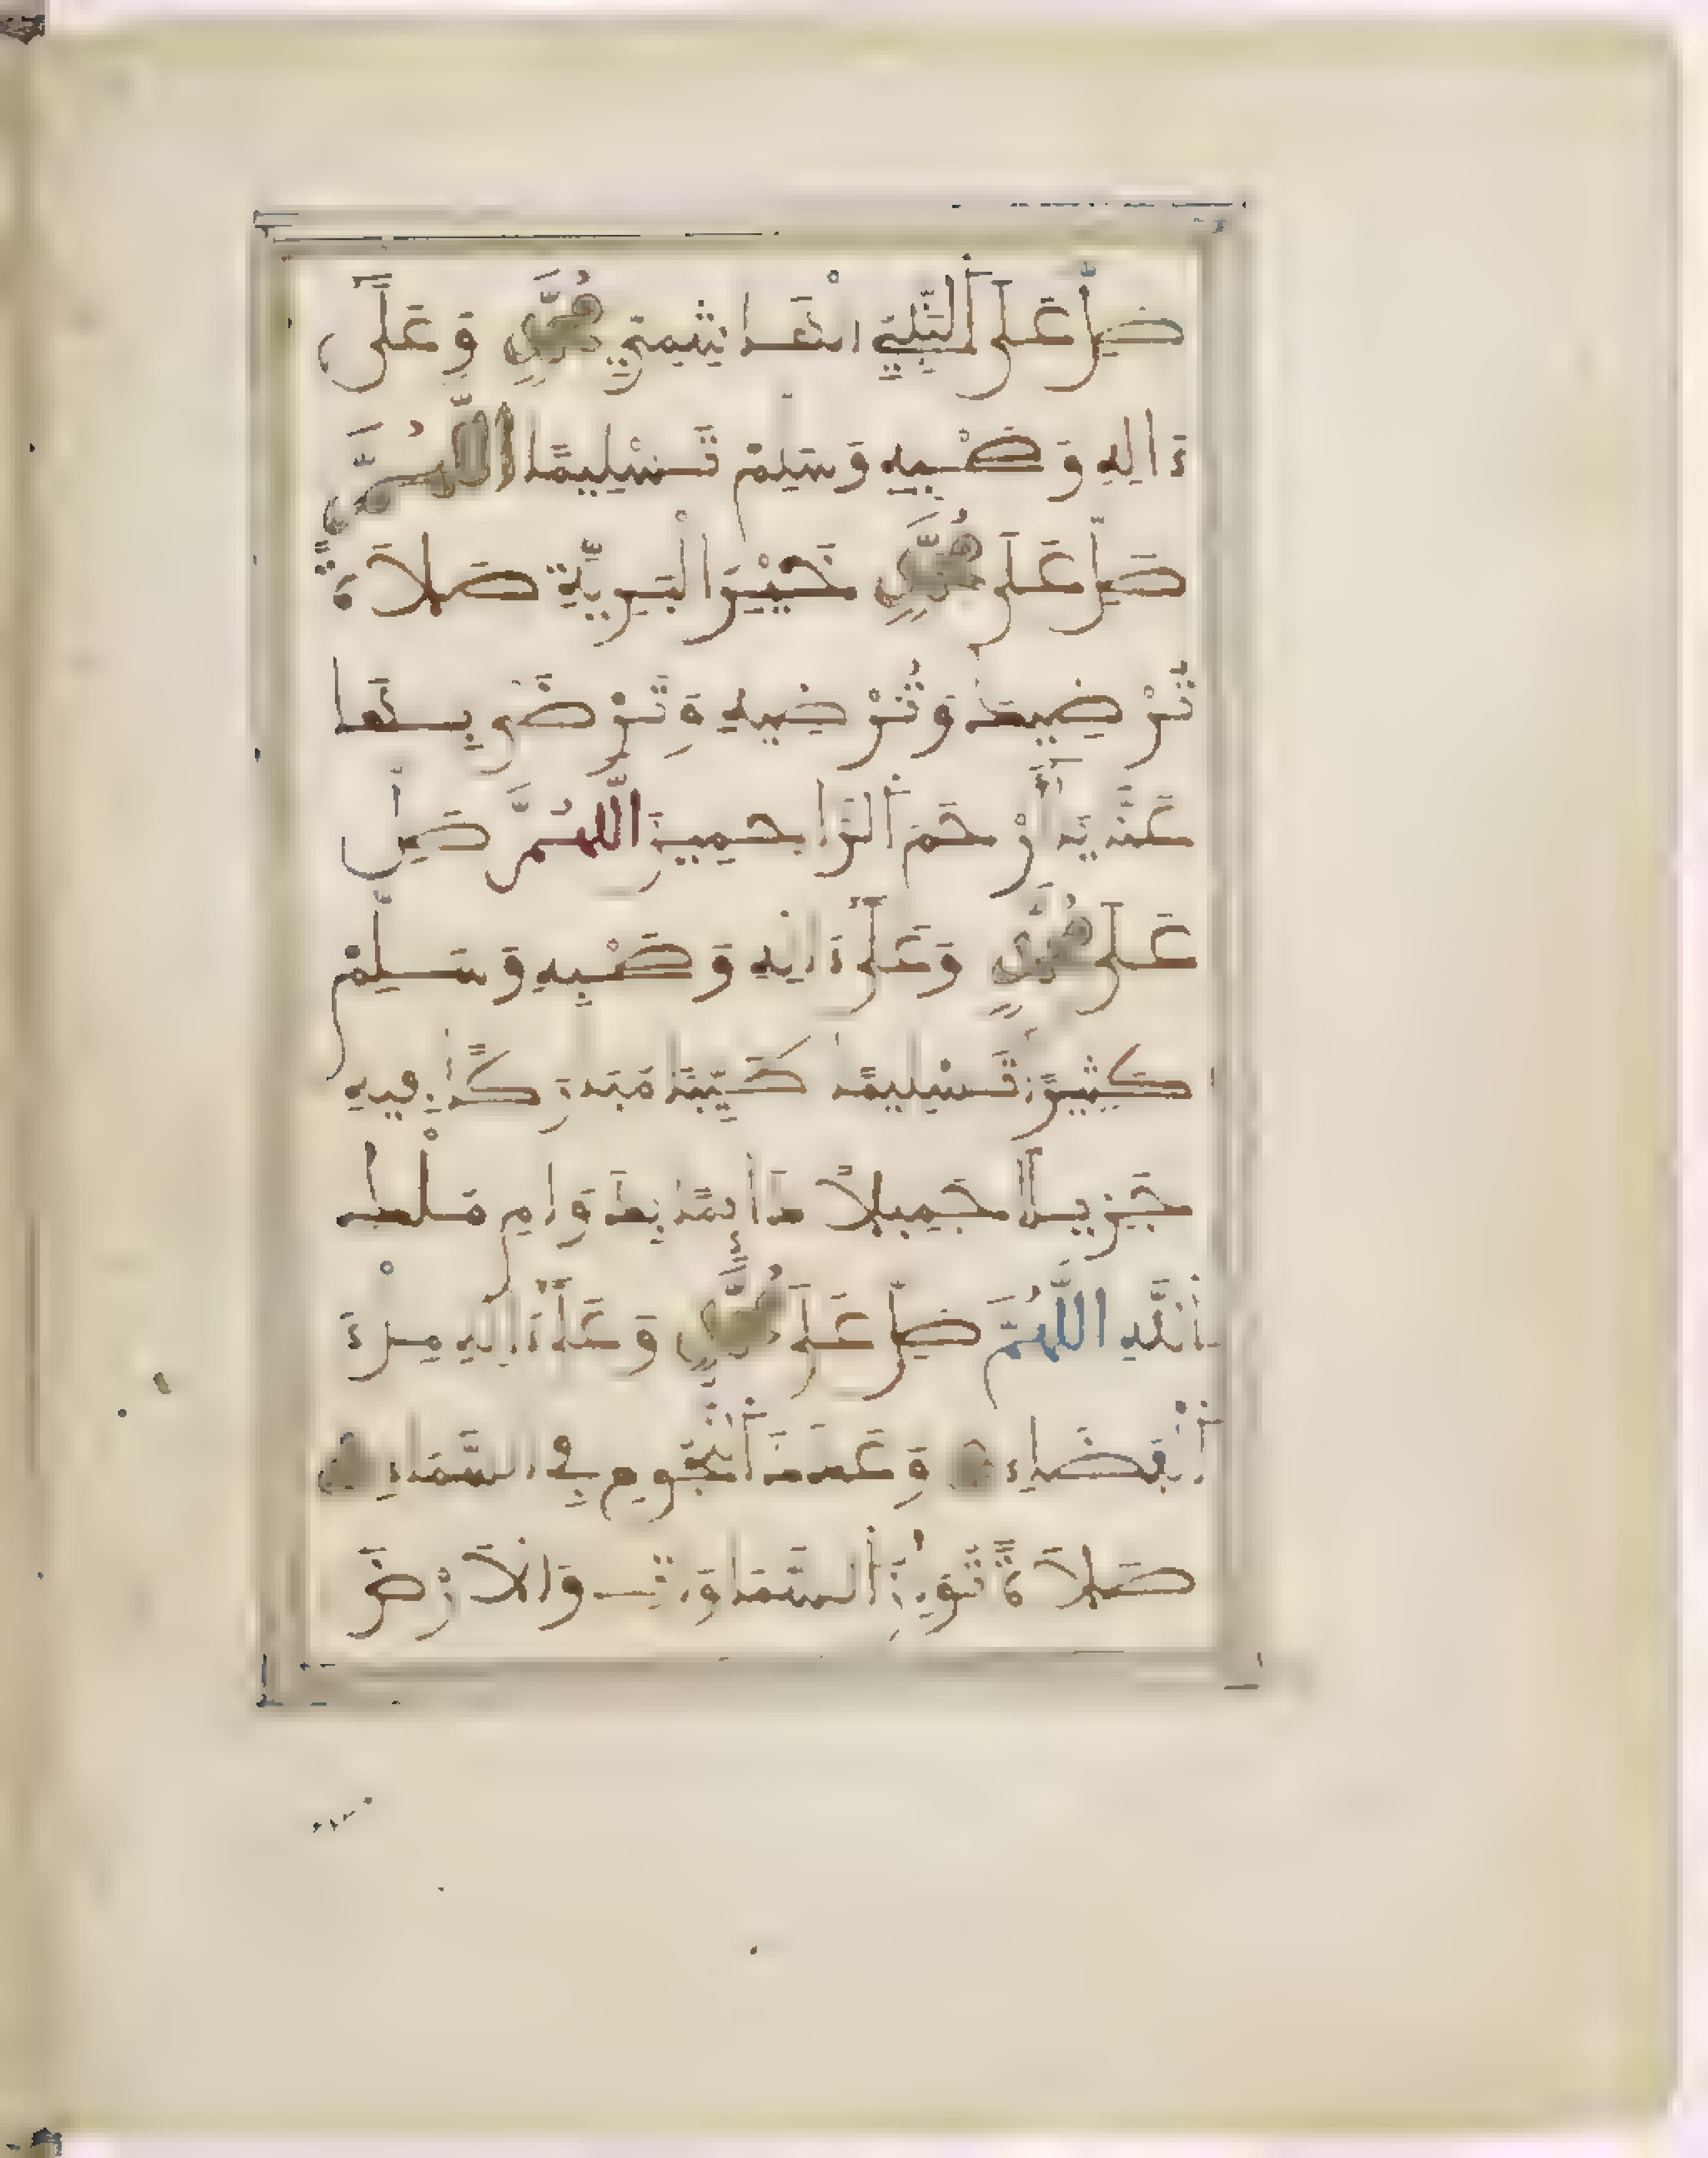 صَلِّ عَلَى ٱلنَّبِيِّ الْهَاشِمِيِّ مُحَمَّدٍ وَعَلَىٰٓ
ءَالِهِ وَصَحْبِهِ وَسَلِّمْ تَسْلِيمًا اللَّهُمَّ
صَلِّ عَلَى مُحَمَّدٍ خَيْرِ الْبَرِيَّةِ صَلَاةً
تُرْضِيكَ وَتُرْضِيهِ وَتَرْضَى بِهَا
عَنَّا يَٰٓأَرْحَمَ ٱلرَّاحِمِينَ اللَّهُمَّ صَلِّ
عَلَى مُحَمَّدٍ وَعَلَىٰٓ ءَالِهِ وَصَحْبِهِ وَسَلِّمْ
كَثِيرًا تَسْلِيمًا طَيِّبًا مُبَارَكًا فِيهِ
جَزِيلًا جَمِيلًا دَآئِمًا بِدَوَامِ مُلْكِ
ٱللَّهِ اللَّهُمَّ صَلِّ عَلَى مُحَمَّدٍ وَعَلَىٰٓ ءَالِهِ مِلْءَ
ٱلْفَضَاءِ وَعَدَدَ ٱلنُّجُومِ فِي السَّمَاءِ
صَلَاةً تُوَازِنُ ٱلسَّمَاوَاتِ وَالْأَرْضَ